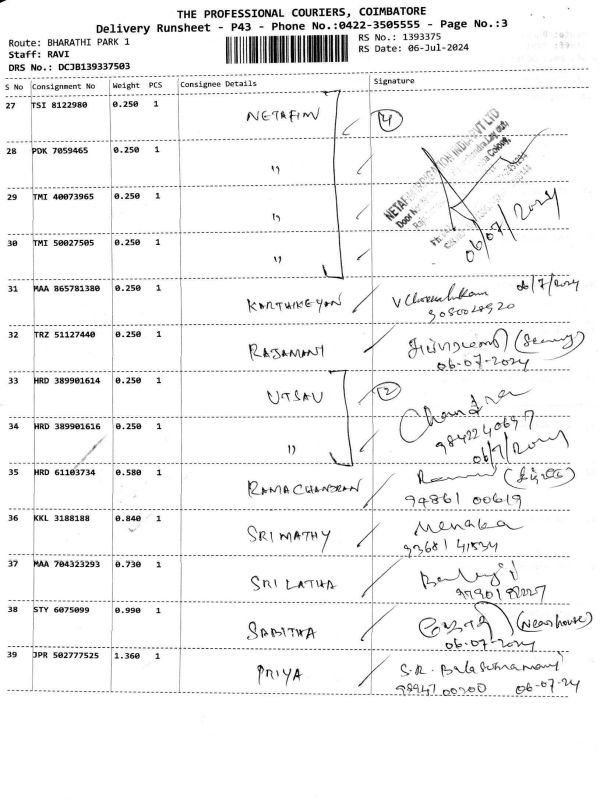 THE PROFESSIONAL COURIERS, COIMBATORE
Delivery Runsheet - P43 - Phone No.:0422-3505555 - Page No.:3
Route: BHARATHI PARK 1
RS No.: 1393375
Staff: RAVI
RS Date: 06-Jul-2024
DRS No.: DCJB139337503
S No Consignment No Weight PCS Consignee Details Signature
27 TSI 8122980 0.250 1 NETAFIM 4
28 PDK 7059465 0.250 1 "
29 TMI 40073965 0.250 1 "
30 TMI 50027505 0.250 1 " 06/07/2024
31 MAA 865781380 0.250 1 KARTHIKEYAN 06/7/2024
32 TRZ 51127440 0.250 1 RAJAMANI
06-07-2024
33 HRD 389901614 0.250 1 UTSAV 2 Chandra
34 HRD 389901616 0.250 1 " 9842240697
06/7/2024
35 HRD 61103734 0.580 1 RAMACHANDRAN
94861 00619
36 KKL 3188188 0.840 1 SRIMATHY Menaka
93681 41534
37 MAA 704323293 0.730 1 SRILATHA
38 STY 6075099 0.990 1 SABITHA (Near house)
06-07-2024
39 JPR 502777525 1.360 1 PRIYA S.R. Balasubramani
98947 00200 06-07-24